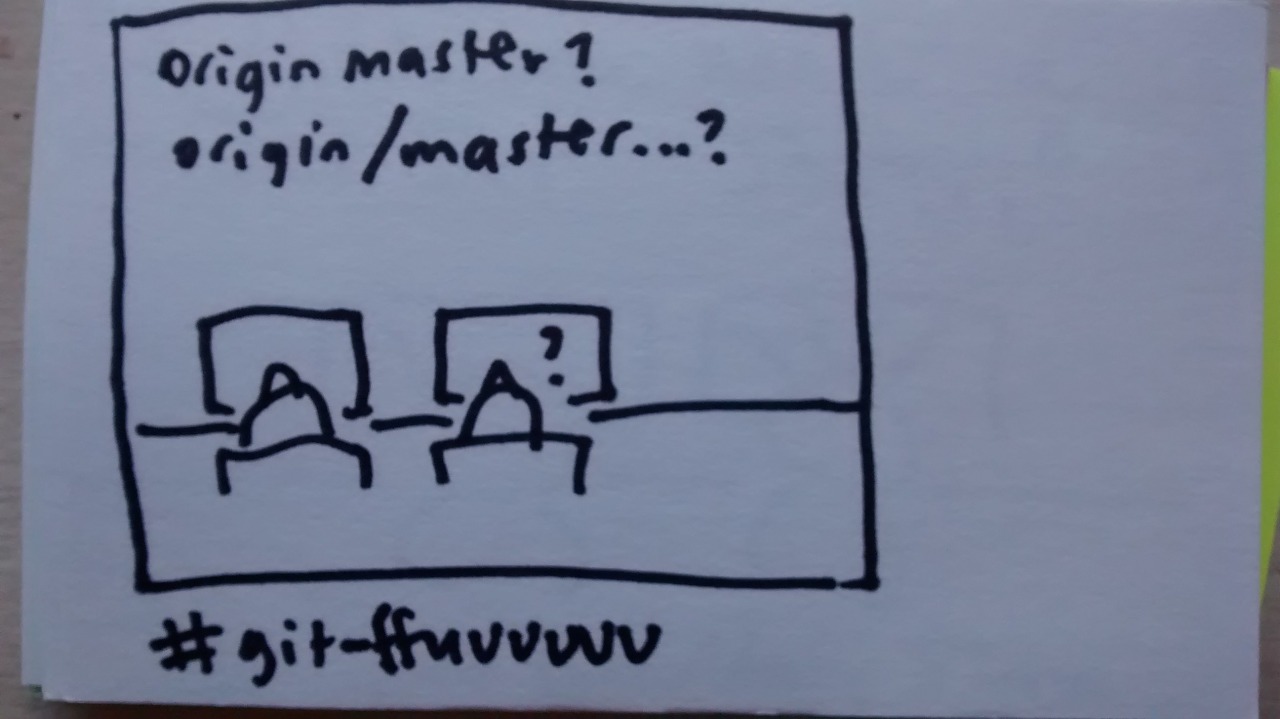 origin master?
origin/master...?
?
#git-ffuvvvvv